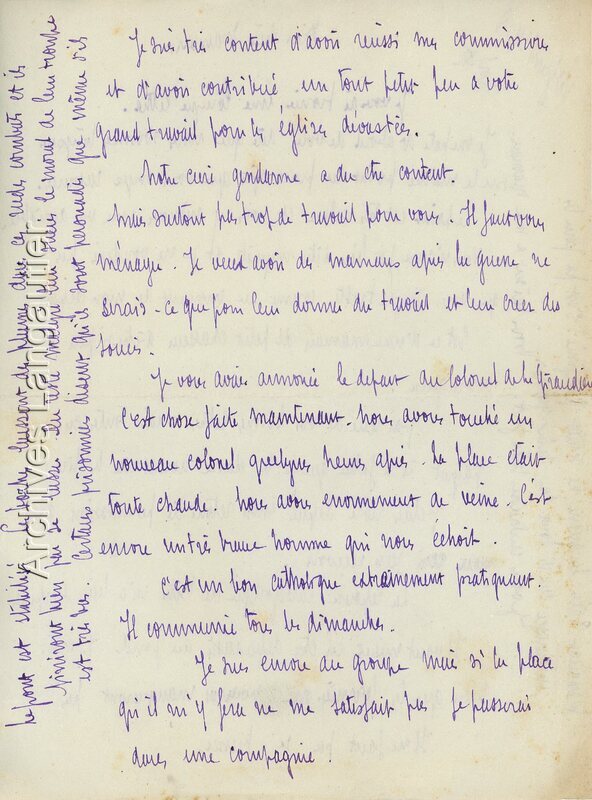 Je suis très content d'avoir réussi mes commissions
et d'avoir contribué, un tout petit peu a votre
grand travail pour les eglises dévastées.
Notre curé gendarme a du etre content.
Mais surtout pas trop de travail pour vous. Il faut vous
ménager. Je veux avoir des mamans après la guerre ne
serais-ce que pour leur donner du travail et leur creer des
soucis.
Je vous avais annoncé le depart du Colonel de la Giraudière
c'est chose faite maintenant. Nous avons touché un
nouveau colonel quelques heures après. La place etait
toute chaude. Nous avons enormement de veine. C'est
encore un très brave homme qui nous échoit.
C'est un bon catholique extrainement pratiquant.
Il communie tous les dimanches.
Je suis encore au groupe mais si la place
qu'il m'y fera ne me satisfait pas je passerai
dans une compagnie.
Le front est stabilisé. Les boches laissent des plumes dans ces rudes combats et ils
finiront bien par se lasser. le moral de leur troupe
est très bas. Certains prisonniers disent qu'ils sont persuadés que même s'ils
Archives Langautier